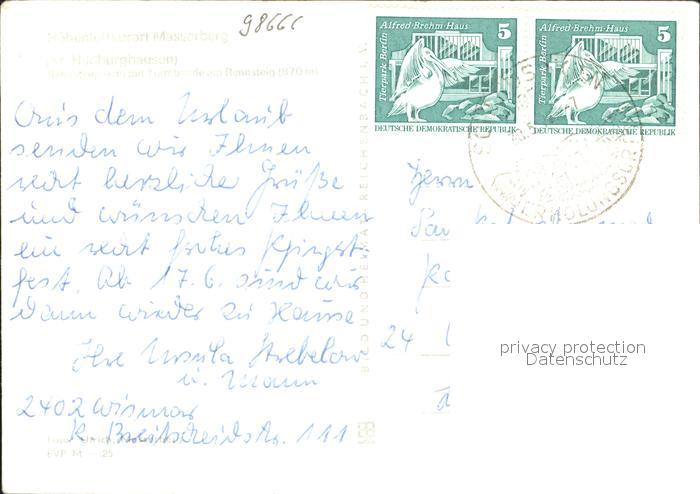 98666
Höhenluftkurort Masserberg
(Kr. Hildburghausen)
am Rennsteig (870 m)
Aus dem Urlaub
senden wir Ihnen
recht herzliche Grüße
und wünschen Ihnen
ein recht frohes Pfingst-
fest. Ab 17.6. sind wir
dann wieder zu Hause
Ihre Ursula Strebelow
u. Mann
2402 Wismar
R. Breitscheidstr. 111
EVP M -.25
BILD UND HEIMAT REICHENBACH I. V.
Alfred-Brehm-Haus 5
Tierpark Berlin
DEUTSCHE DEMOKRATISCHE REPUBLIK
Alfred-Brehm-Haus 5
Tierpark Berlin
DEUTSCHE DEMOKRATISCHE REPUBLIK
Herrn
24
privacy protection
Datenschutz